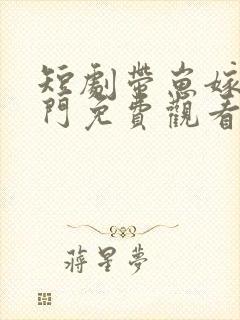 短劇帶崽嫁
門免費觀看
蔣星夢